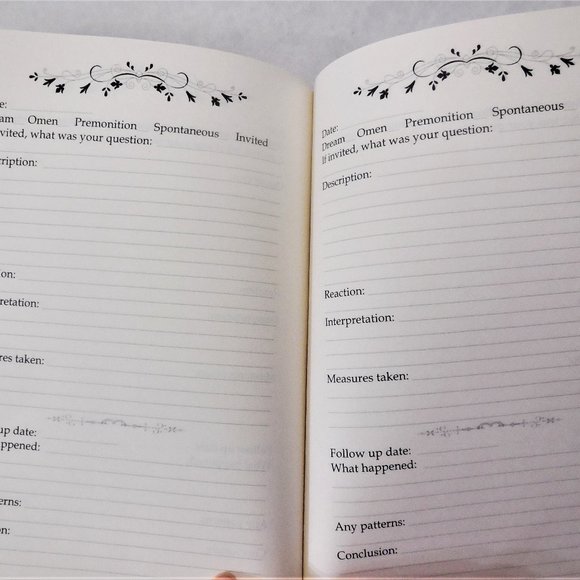 e:
am Omen Premonition Spontaneous Invited
nvited, what was your question:
cription:
ion:
retation:
res taken:
up date:
ppened:
terns:
on:
Date:
Dream Omen Premonition Spontaneous
If invited, what was your question:
Description:
Reaction:
Interpretation:
Measures taken:
Follow up date:
What happened:
Any patterns:
Conclusion: